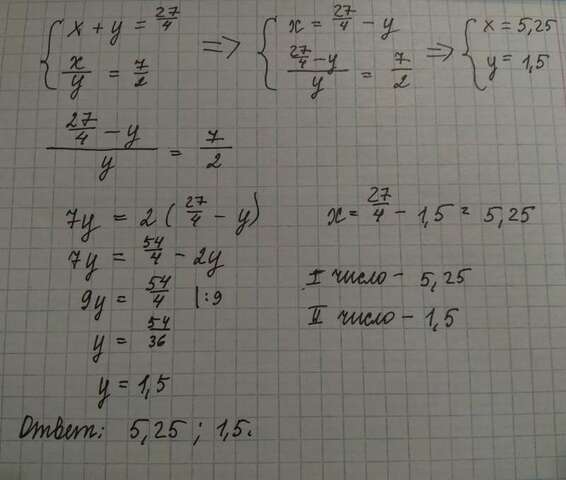 { x + y = 27/4 => { x = 27/4 - y => { x = 5,25
{ x/y = 7/2 { (27/4 - y)/y = 7/2 { y = 1,5
(27/4 - y)/y = 7/2
7y = 2 ( 27/4 - y)
7y = 54/4 - 2y
9y = 54/4 |:9
y = 54/36
y = 1,5
x = 27/4 - 1,5 = 5,25
I число - 5,25
II число - 1,5
Ответ: 5,25 ; 1,5.